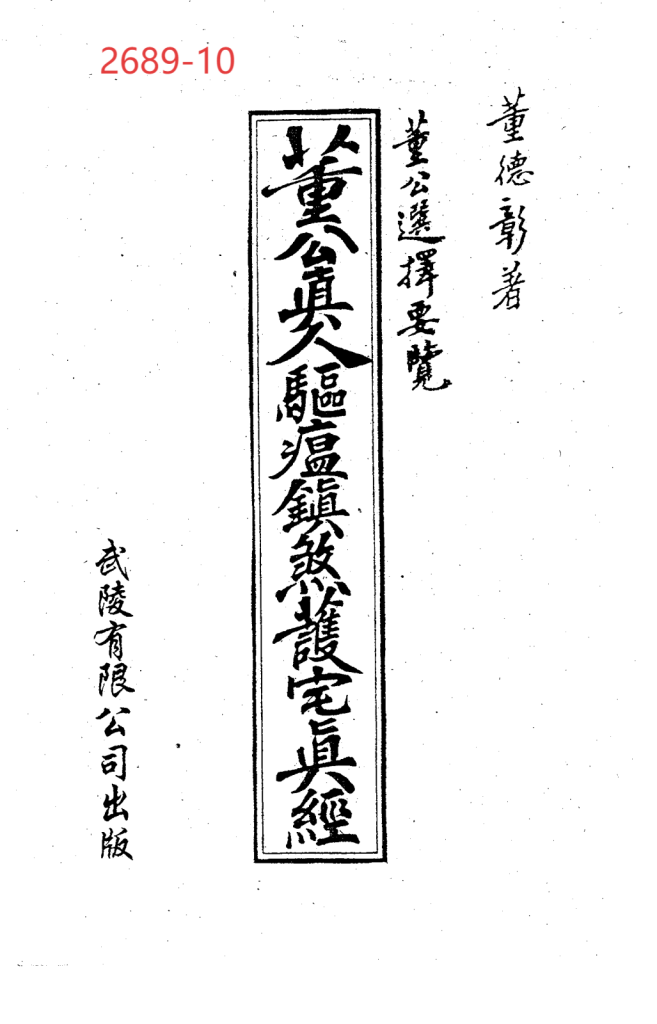 2689-10
董德彰著
董公選擇要覽
董公真人驅瘟鎮煞護宅真經
武陵有限公司出版